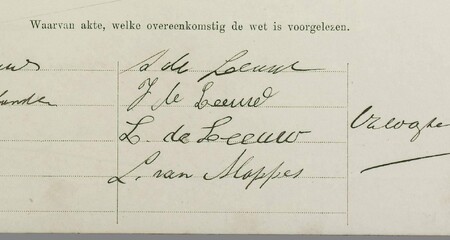 Waarvan akte, welke overeenkomstig de wet is voorgelezen.
S de Leeuw
J de Leeuw
L. de Leeuw
L. van Moppes